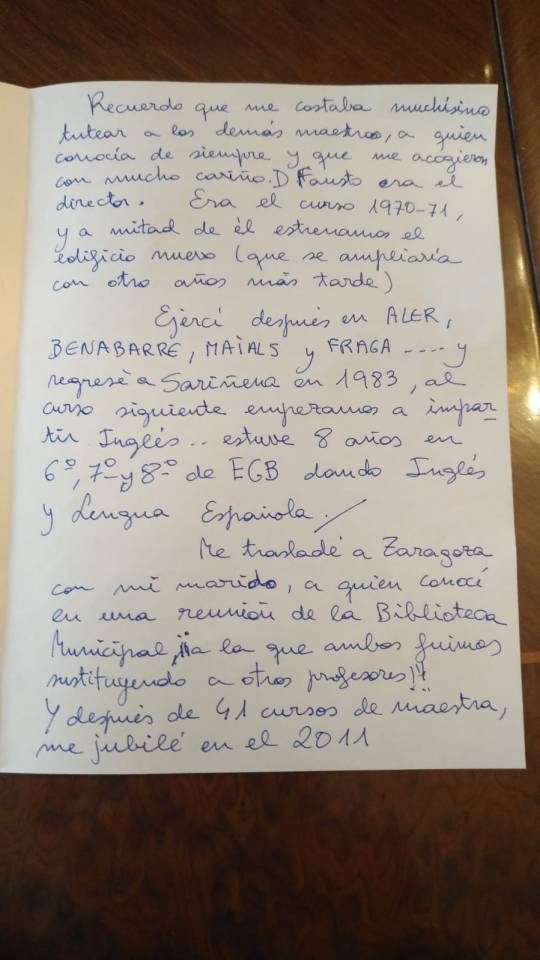 Recuerdo que me costaba muchísimo
tutear a los demás maestros, a quien
conocía de siempre y que me acogieron
con mucho cariño. D Fausto era el
director. Era el curso 1970-71,
y a mitad de él estrenamos el
edificio nuevo (que se ampliaría
con otro años más tarde)
Ejercí después en ALER,
BENABARRE, MAIALS y FRAGA .... y
regresé a Sariñena en 1983, al
curso siguiente empezamos a impar-
tir Inglés.. estuve 8 años en
6º, 7º y 8º de EGB dando Inglés
y Lengua Española.
Me trasladé a Zaragoza
con mi marido, a quien conocí
en una reunión de la Biblioteca
Municipal, ¡¡a la que ambos fuimos
sustituyendo a otros profesores!!
Y después de 41 cursos de maestra,
me jubilé en el 2011